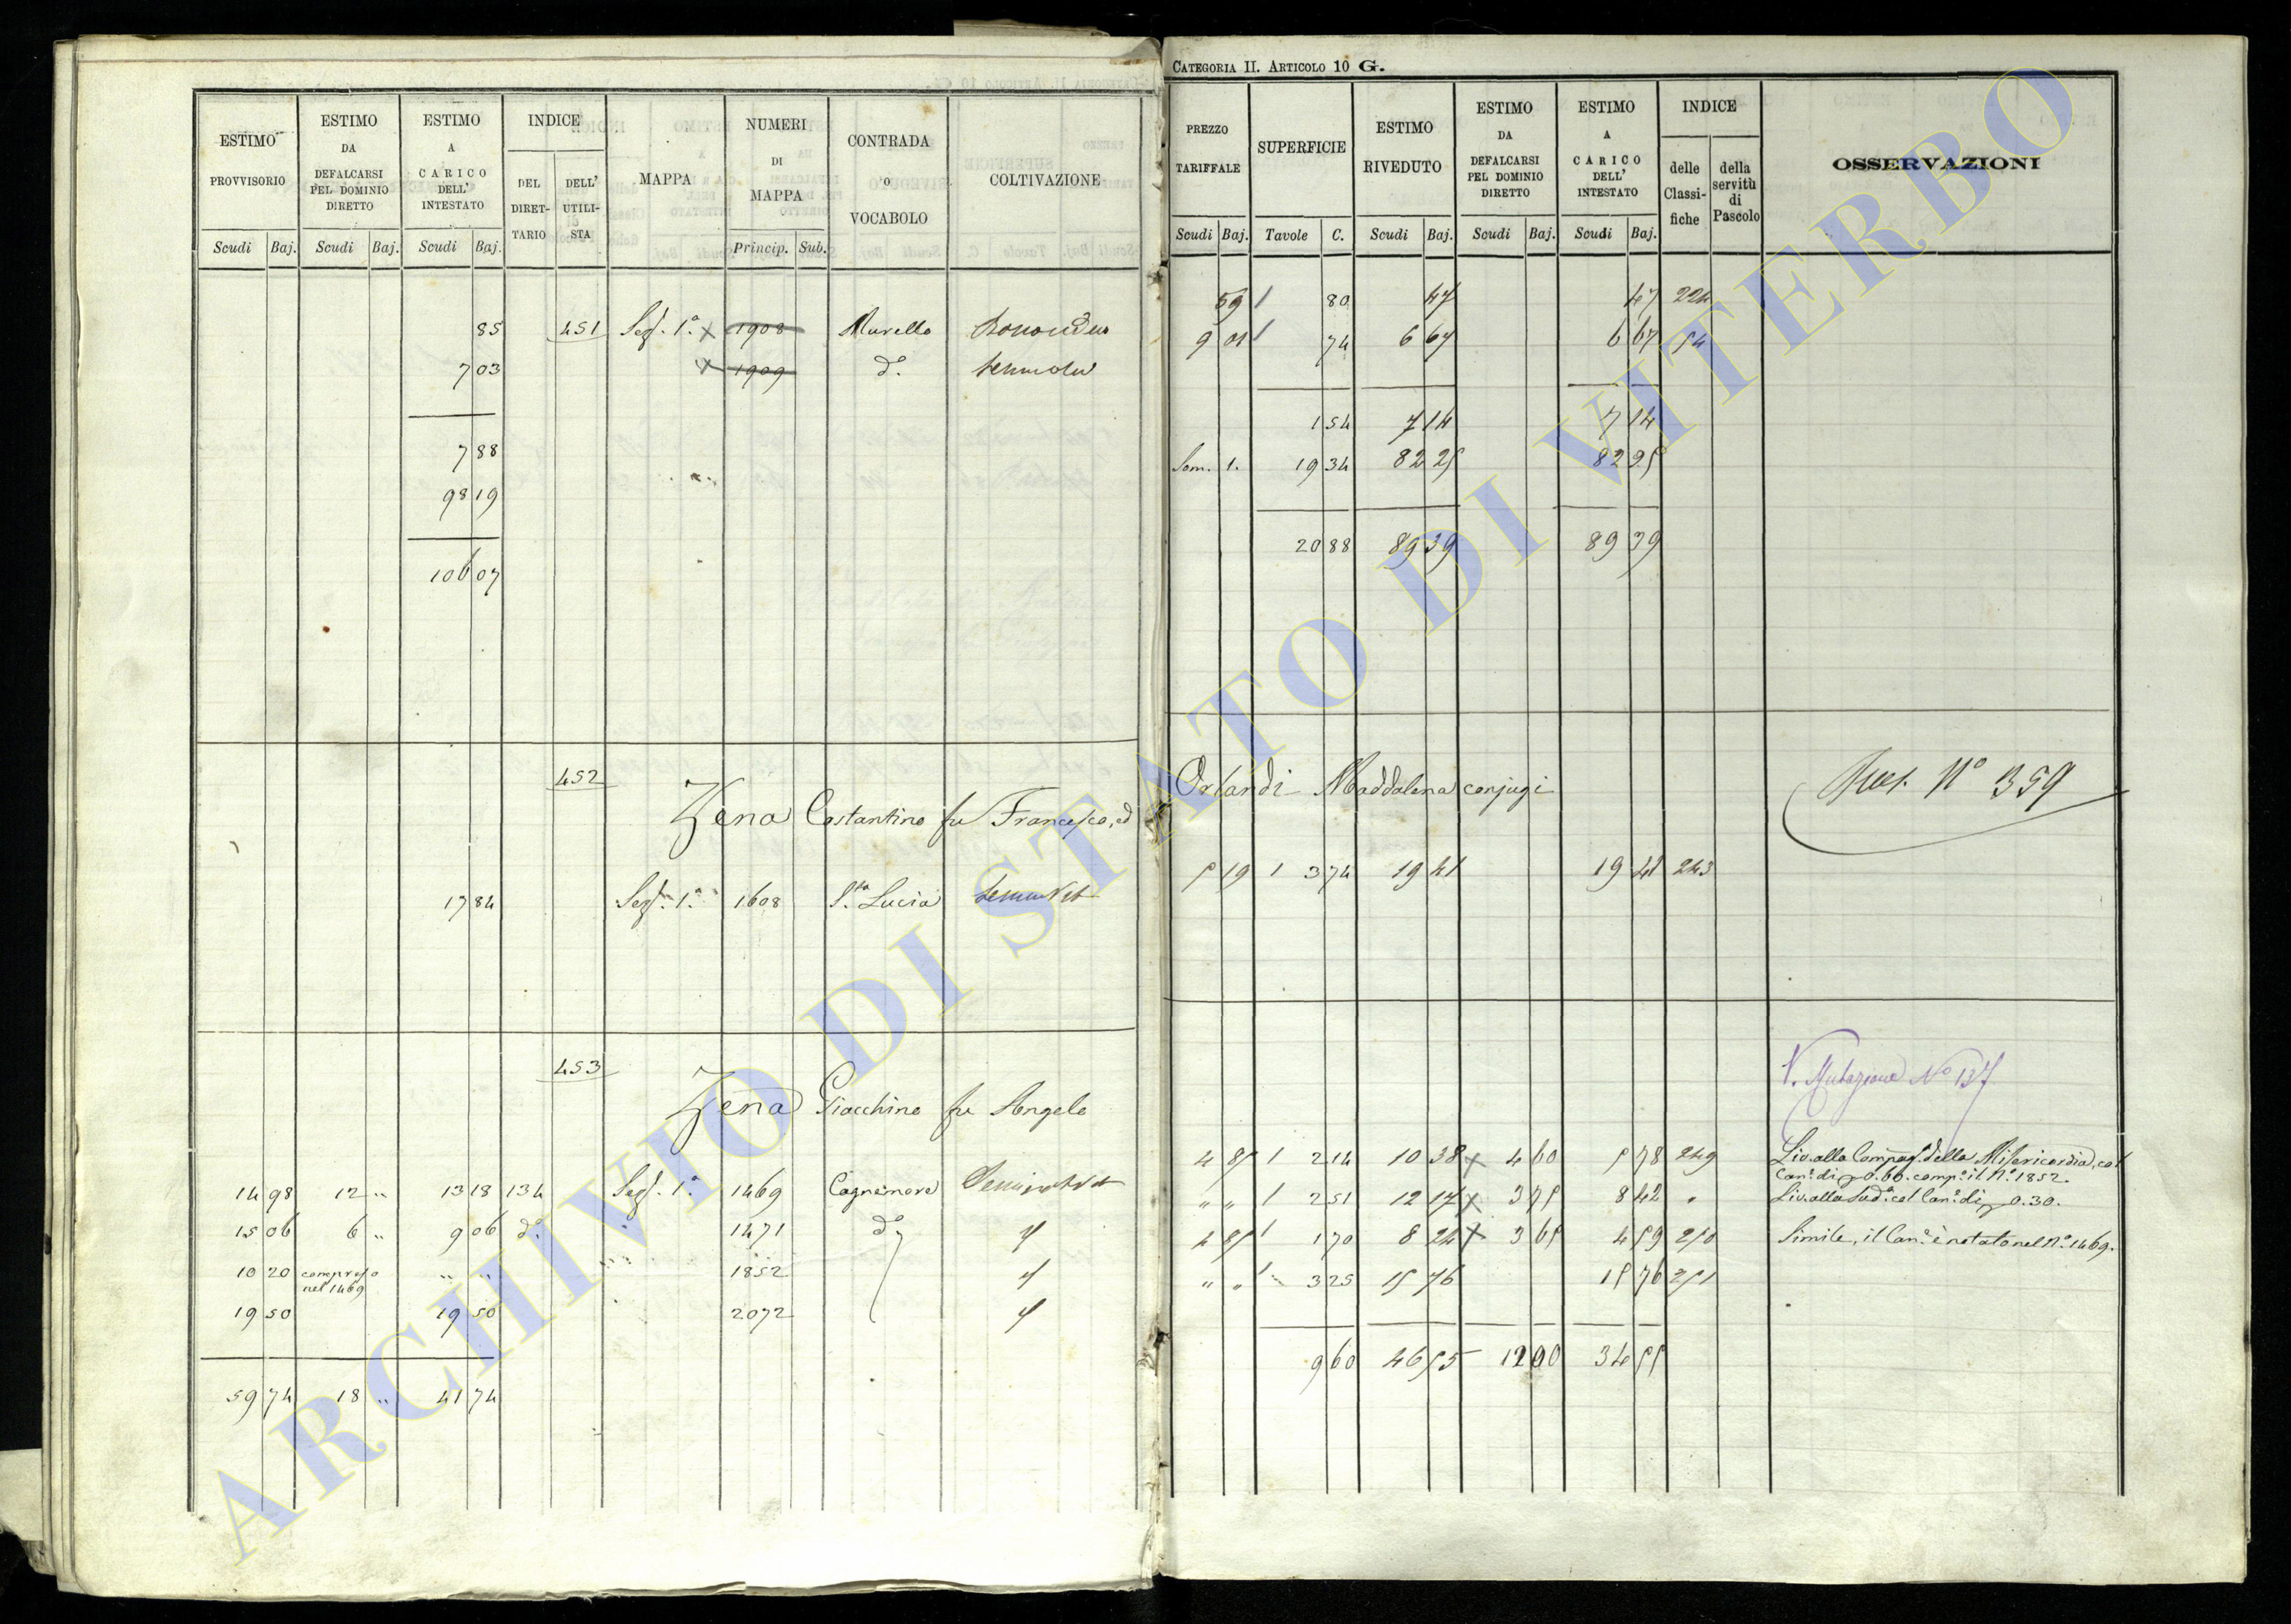 CATEGORIA II. ARTICOLO 10 G.
ESTIMO PROVVISORIO
ESTIMO DA DEFALCARSI PEL DOMINIO DIRETTO
ESTIMO A CARICO DELL' INTESTATO
INDICE
DEL DIRET-TARIO
DELL' UTILI-STA
MAPPA
NUMERI DI MAPPA
CONTRADA o VOCABOLO
COLTIVAZIONE
Scudi Baj. Scudi Baj. Scudi Baj. Princip. Sub.
85 451 Sez. 1.ª 1908 Murello
7 03 1909 d.º
7 88
98 19
106 07
452
Zena Costantino fu Francesco, ed
17 84 Sez. 1.ª 1608 S.ta Lucia
453
Zena Giacchino fu Angelo
14 98 12 " 13 18 134 Sez. 1.ª 1469 Cagnemora
15 06 6 " 9 06 d.º 1471 d.º
10 20 compreso nel 1469 " " 1852
19 50 19 50 2072
59 74 18 " 41 74
PREZZO TARIFFALE
SUPERFICIE
ESTIMO RIVEDUTO
ESTIMO DA DEFALCARSI PEL DOMINIO DIRETTO
ESTIMO A CARICO DELL' INTESTATO
INDICE
delle Classi-fiche
della servitù di Pascolo
OSSERVAZIONI
Scudi Baj. Tavole C. Scudi Baj. Scudi Baj. Scudi Baj.
59 1 80 47 47 224
9 01 1 74 6 67 6 67 54
1 54 7 14 7 14
Som. 1. 19 34 82 25 82 25
20 88 89 39 89 39
Orlandi Maddalena conjugi
N.º 359
5 19 1 3 74 19 41 19 41 243
V. Mutazione N.º 137
4 85 1 2 14 10 38 4 60 5 78 249 Liv. alla Compag. della Misericordia, col
Can.e di 0.60. comp.º il N.º 1852.
" " 1 2 51 12 17 3 75 8 42 " Liv. alla Sud.ª col Can.e di 0.30.
4 85 1 1 70 8 24 3 65 4 59 250 Simile, il Can.e è notato nel N.º 1469.
" " 1 3 25 15 76 15 76 251
9 60 46 55 12 00 34 55
ARCHIVIO DI STATO DI VITERBO